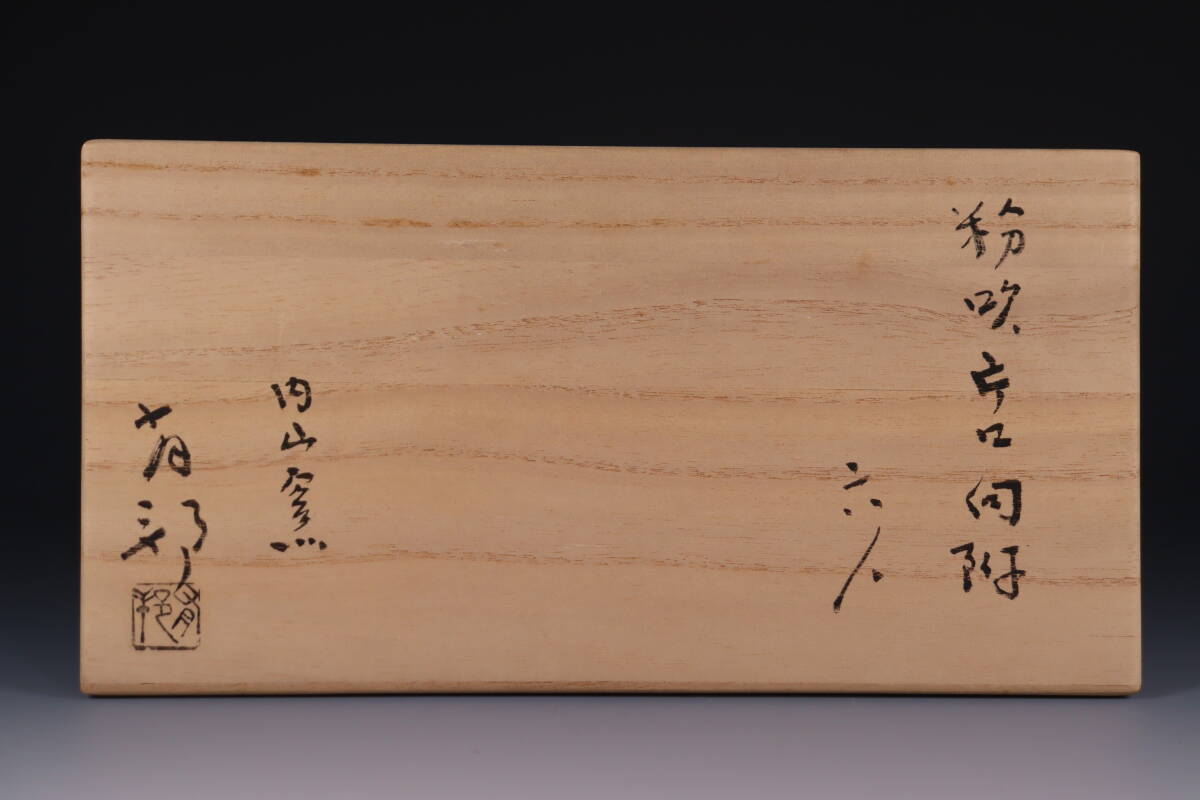 粉吹片口向附
六人
内山窯
有邦
有邦